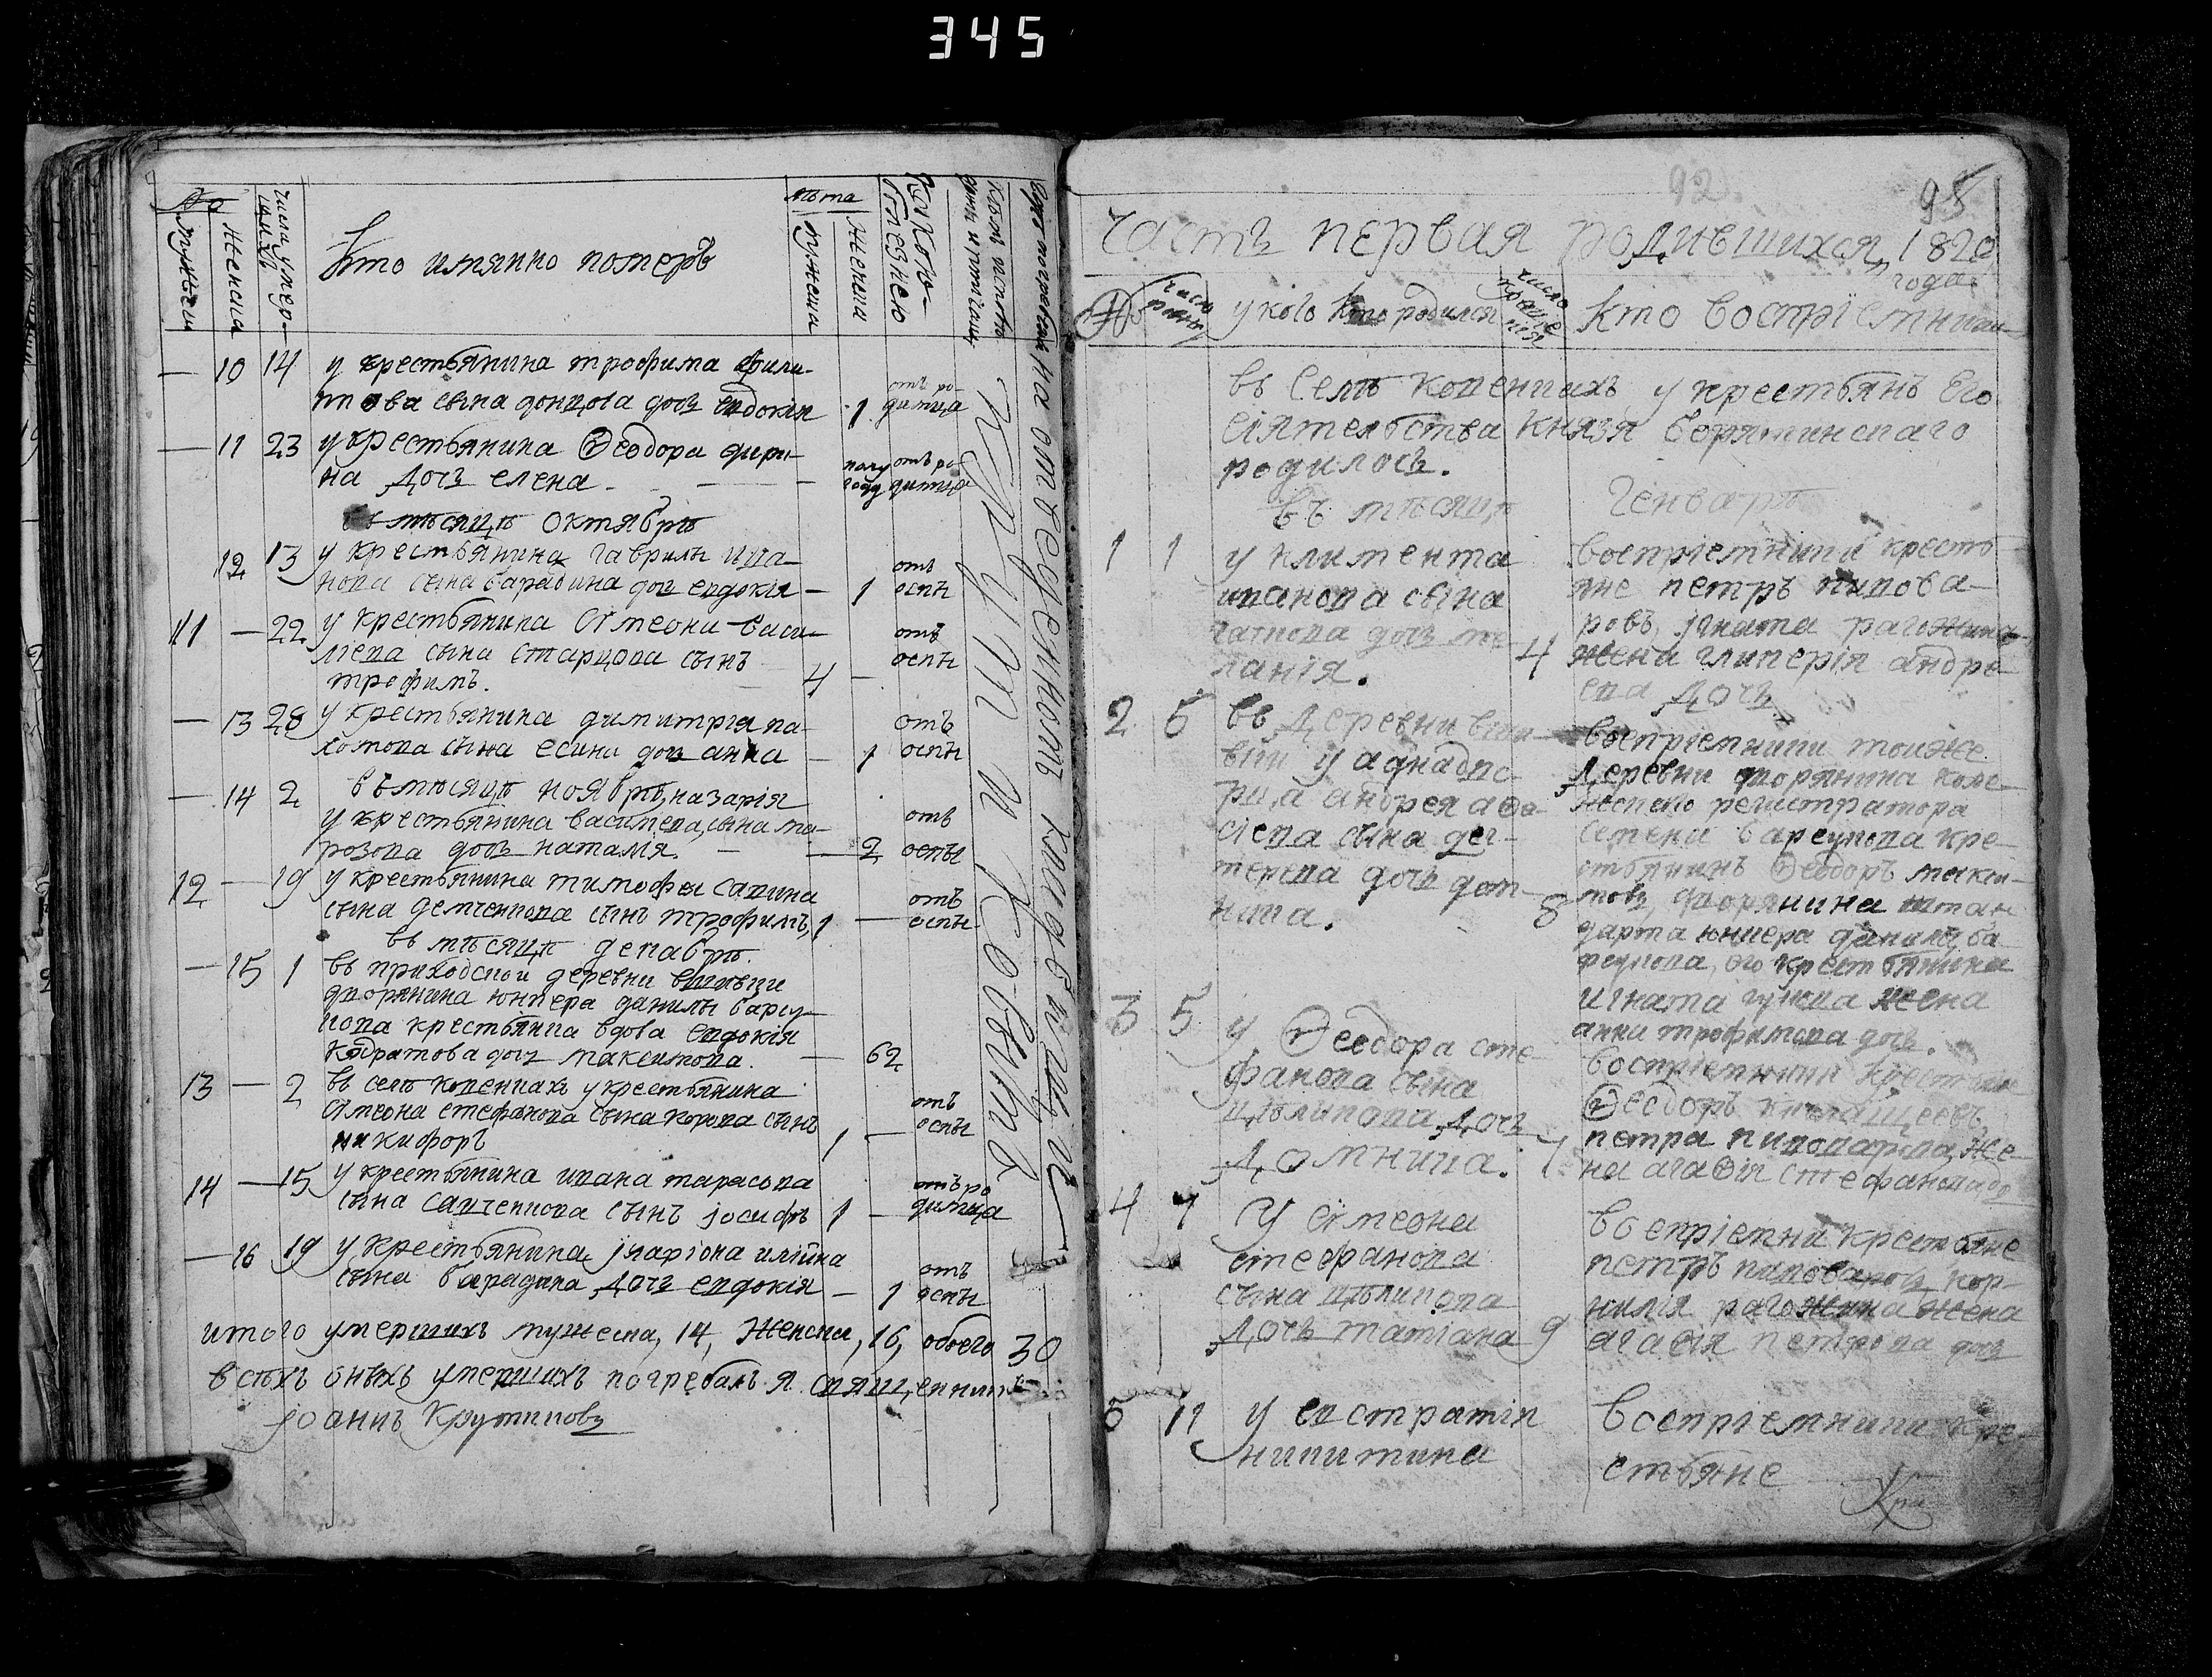 345
№
мужеска
женска
числа умер-
шихъ
Кто имянно померъ
лѣта
мужеска
женска
Какою
болезнею
Кѣмъ исповѣ
данъ и пріобщ
Где погребены
на отведенномъ кладбищѣ
Крутиковымъ
— 10 14 у крестьянина трофима фили-
това сына донцова дочь евдокія 1 отъ ро-
димца
— 11 23 у крестьянина Ѳеодора дири-
на дочь елена — полу году отъ ро-
димца
въ мѣсяцѣ октябрѣ
12 13 у крестьянина гаврилы ива-
нова сына барадина дочь евдокія — 1 отъ
оспы
11 — 22 у крестьянина Сѵмеона васи-
лiева сына старцова сынъ
трофимъ. 4 — отъ
оспы
— 13 28 у крестьянина димитрія па-
хомова сына есина дочь анна — 1 отъ
оспы
въ мѣсяцѣ ноябрѣ, назарія
— 14 2 у крестьянина василева, сына ма-
розова дочь наталія. — 2 отъ
оспы
12 — 19 у крестьянина тимофея савина
сына демченкова сынъ трофимъ, 1 — отъ
оспы
въ мѣсяцѣ декабрѣ.
— 15 1 въ приходской деревни
дворянина юнкера данилы барсу-
кова крестьянка вдова евдокія
кодратова дочь максимова. — 62
13 — 2 въ селѣ копенкахъ у крестьянина
Сѵмеона стефанова сына сынъ
никифоръ 1 — отъ
оспы
14 — 15 у крестьянина ивана тарасова
сына савченкова сынъ іосифъ 1 — отъ ро
димца
— 16 19 у крестьянина іларіона
сына барадина дочь евдокія — 1 отъ
оспы
итого умершихъ мужеска, 14, женска, 16, обоего 30
всѣхъ оныхъ умершихъ погребалъ я священникъ
іоаннъ Крутиковъ
92
95
часть первая родившихся, 1820
года
№
число
рожде
у кого кто родился
число
креще
нія
кто воспріемники
въ селѣ копенкахъ у крестьянъ Его
сіятельства Князя борятинскаго
родилось.
въ мѣсяцѣ генварѣ
1 1 у климента
иванова сына
дочь ме
ланія. 4
воспріемники кресть
яне петръ пивова-
ровъ, ігната рагожина
жена гликерія андре-
ева дочь
2 5 въ деревни
у аднадво
рца андрея аѳа
сіева сына дег-
терева дочь дом-
ника. 8
воспріемники тоижѐ
деревни дворянина коле-
жескаго регистратора
семена барсукова кре-
стьянинъ Ѳеодоръ макси-
мовъ, дворянина штан
дарта юнкера данилы ба-
рсукова, его крестьянина
игната гукова жена
анна трофимова дочь.
3 5 у Ѳеодора сте
фанова сына
цѣликова дочь
домника. 7
воспріемники крестьяне
Ѳеодоръ
петра пивоварова же-
на агаѳія стефанова до
4 7 У сѵмеона
стефанова
сына цѣликова
дочь татіана 9
воспріемни крестьяне
петръ пивоваровъ, кор-
нилія рагожина жена
агаѳія петрова дочь
5 11 у евстратія
никитина
воспріемники кре-
стьяне
Кру